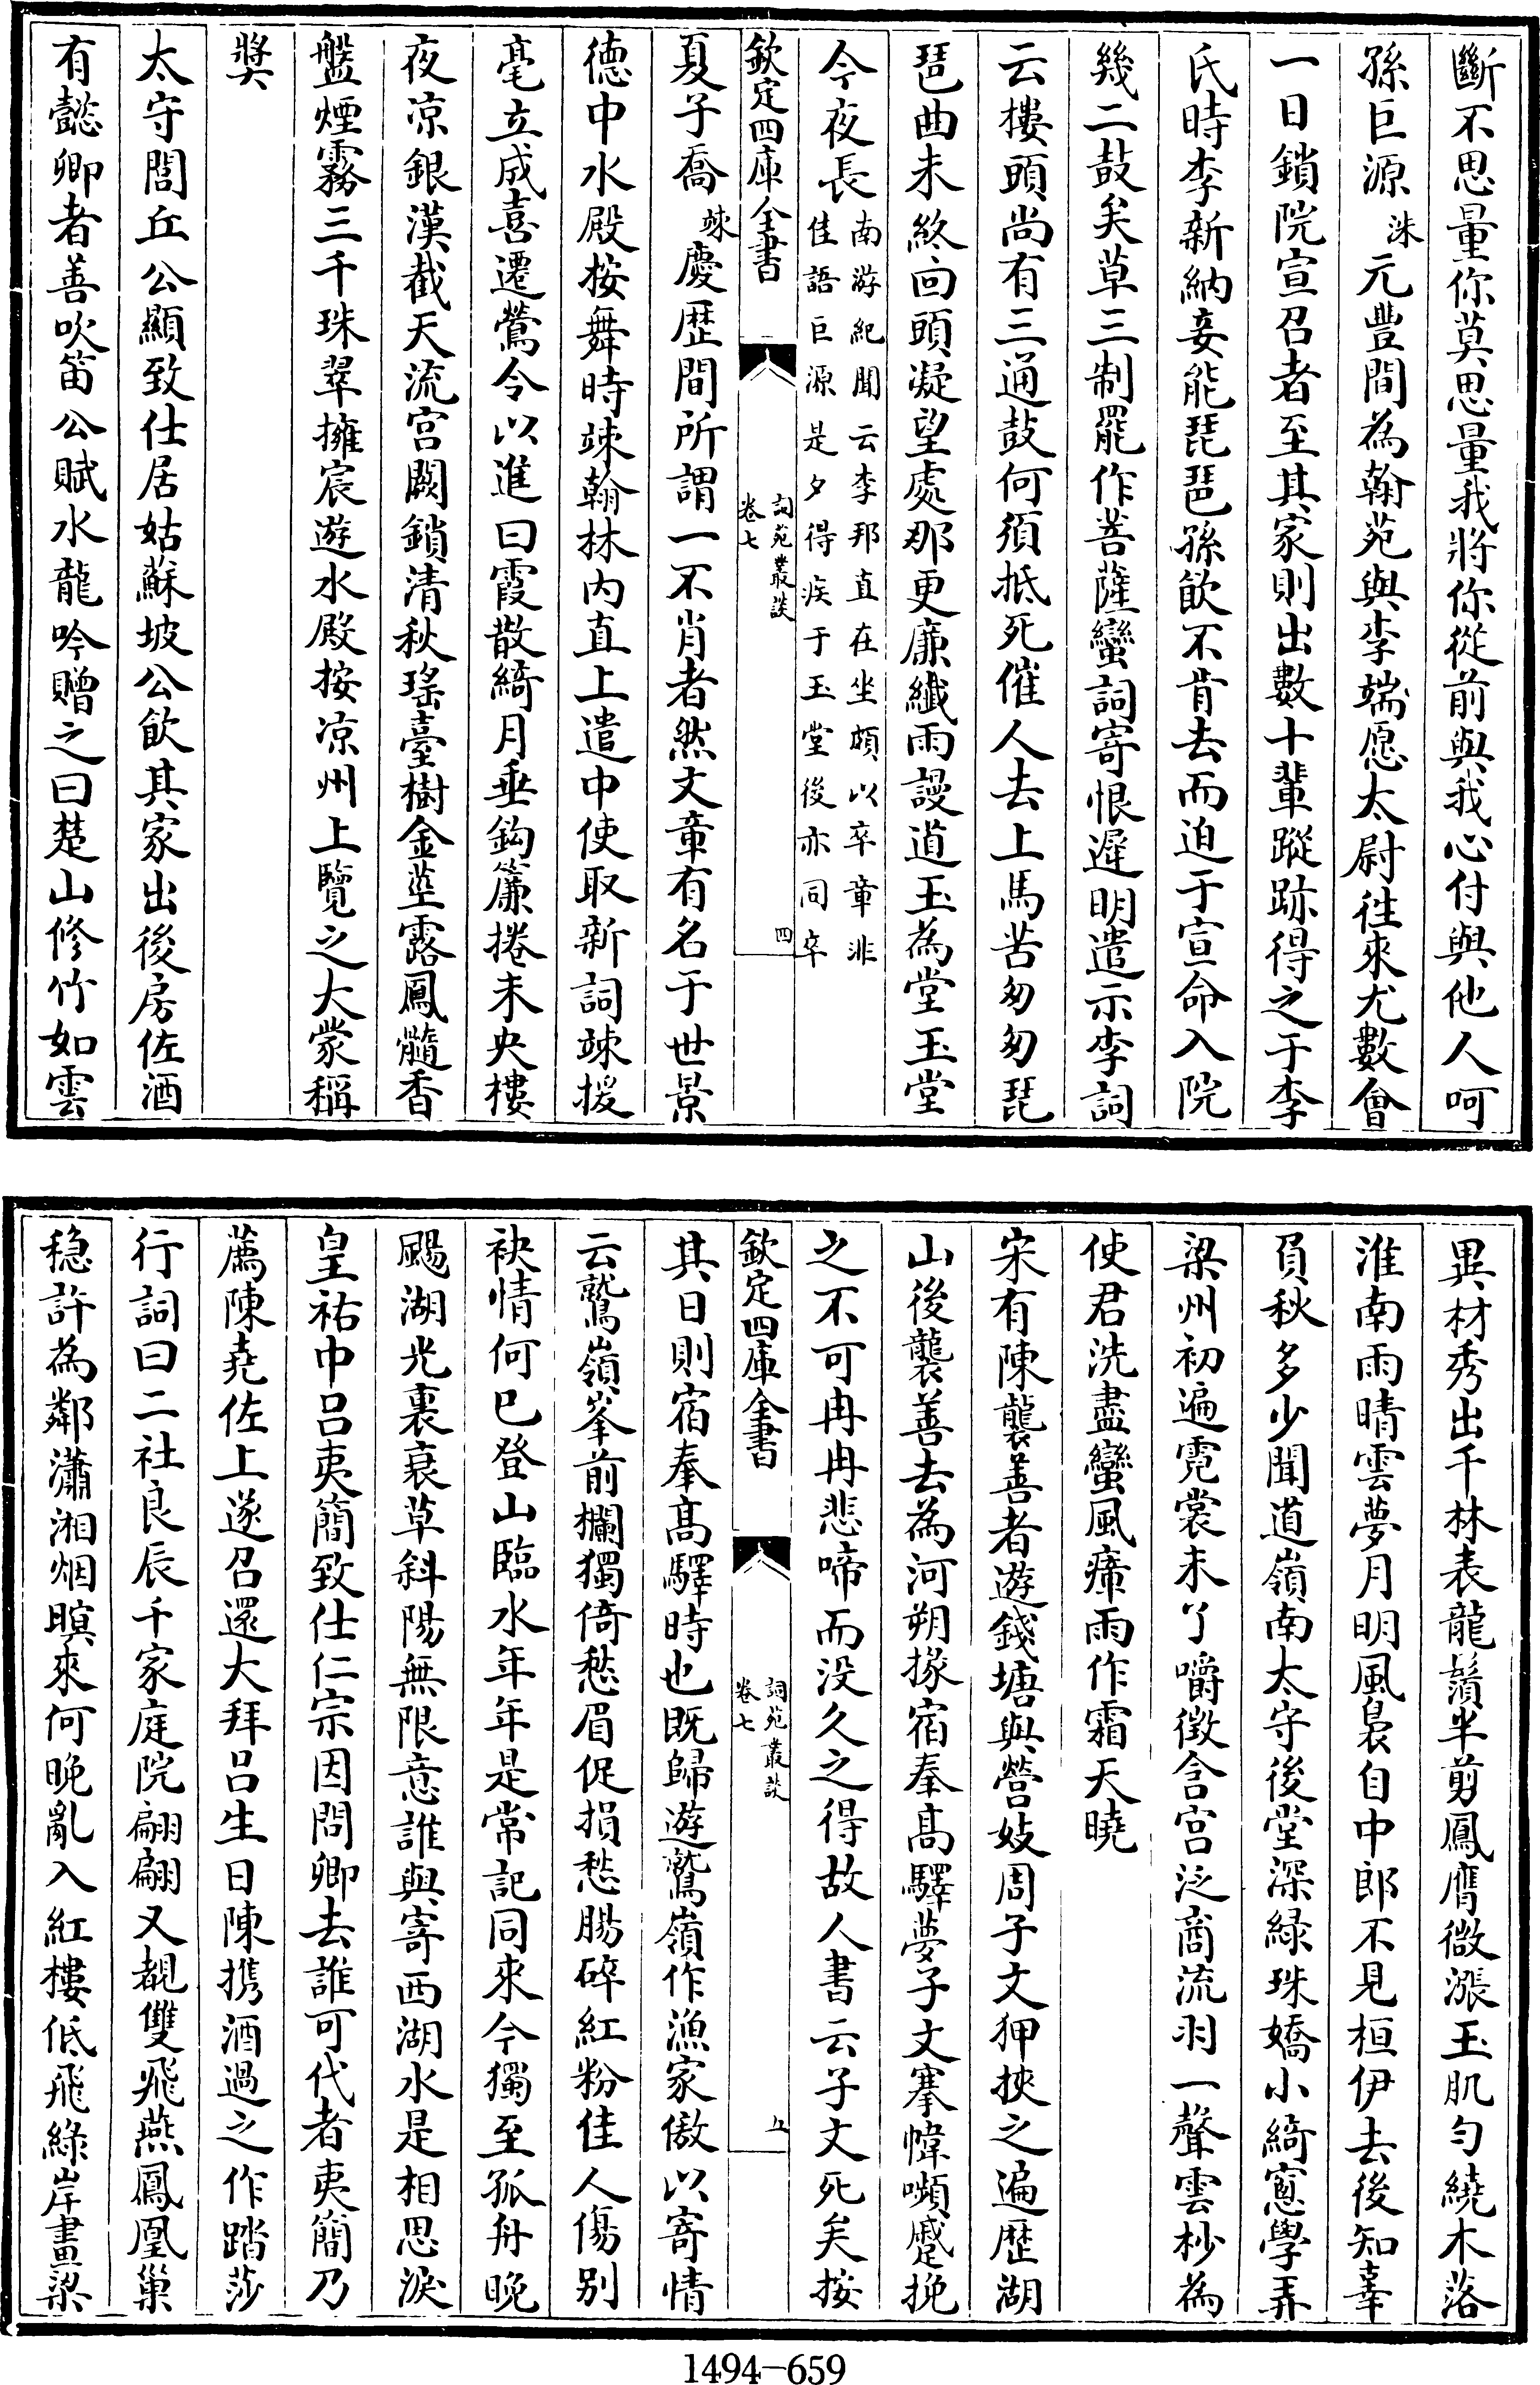 斷不思量你莫思量我將你從前與我心付與他人呵
孫巨源洙元豐間為翰苑與李端愿太尉徃來尤數㑹
一日鎖院宣召者至其家則出數十輩蹤跡得之于李
氏時李新納妾能琵琶孫飲不肯去而迫于宣命入院
幾二鼓矣草三制罷作菩薩蠻詞寄恨遲明遣示李詞
云樓頭尚有三通鼓何須抵死催人去上馬苦匆匆琵
琶曲未終囘頭凝望處那更廉纖雨謾道玉為堂玉堂
今夜長南游紀聞云李邦直在坐頗以卒章非
佳語巨源是夕得疾于玉堂後亦同卒
欽定四庫全書
詞苑叢談
卷七
四
夏子喬竦慶歴間所謂一不肖者然文章有名于世景
德中水殿按舞時竦翰林内直上遣中使取新詞竦援
毫立成喜遷鶯令以進曰霞散綺月垂鈎簾捲未央樓
夜凉銀漢截天流宫闕鎖清秋瑤臺樹金莖露鳳髓香
盤煙霧三千珠翠擁宸遊水殿按凉州上覽之大蒙稱
奬
太守閭丘公顯致仕居姑蘇坡公飲其家出後房佐酒
有懿卿者善吹笛公賦水龍吟贈之曰楚山修竹如雲
異材秀出千林表龍鬚半剪鳳膺微漲玉肌勻繞木落
淮南雨晴雲夢月明風裊自中郎不見桓伊去後知辜
負秋多少聞道嶺南太守後堂深緑珠嬌小綺窻學弄
梁州初遍霓裳未了嚼徵含宫泛商流羽一聲雲杪為
使君洗盡蠻風瘴雨作霜天曉
宋有陳襲善者遊錢塘與營妓周子文狎挾之遍歴湖
山後襲善去為河朔掾宿奉髙驛夢子文搴幃嚬蹙挽
之不可冉冉悲啼而没久之得故人書云子文死矣按
欽定四庫全書
詞苑叢談
卷七
五
其日則宿奉髙驛時也既歸遊鷲嶺作漁家傲以寄情
云鷲嶺峯前欄獨倚愁眉促損愁腸碎紅粉佳人傷别
袂情何已登山臨水年年是常記同來今獨至孤舟晚
颺湖光裏衰草斜陽無限意誰與寄西湖水是相思淚
皇祐中吕夷簡致仕仁宗因問卿去誰可代者夷簡乃
薦陳堯佐上遂召還大拜吕生日陳携酒過之作踏莎
行詞曰二社良辰千家庭院翩翩又覩雙飛燕鳳凰巢
穏許為鄰瀟湘烟暝來何晚亂入紅樓低飛綠岸畫梁
1494—659